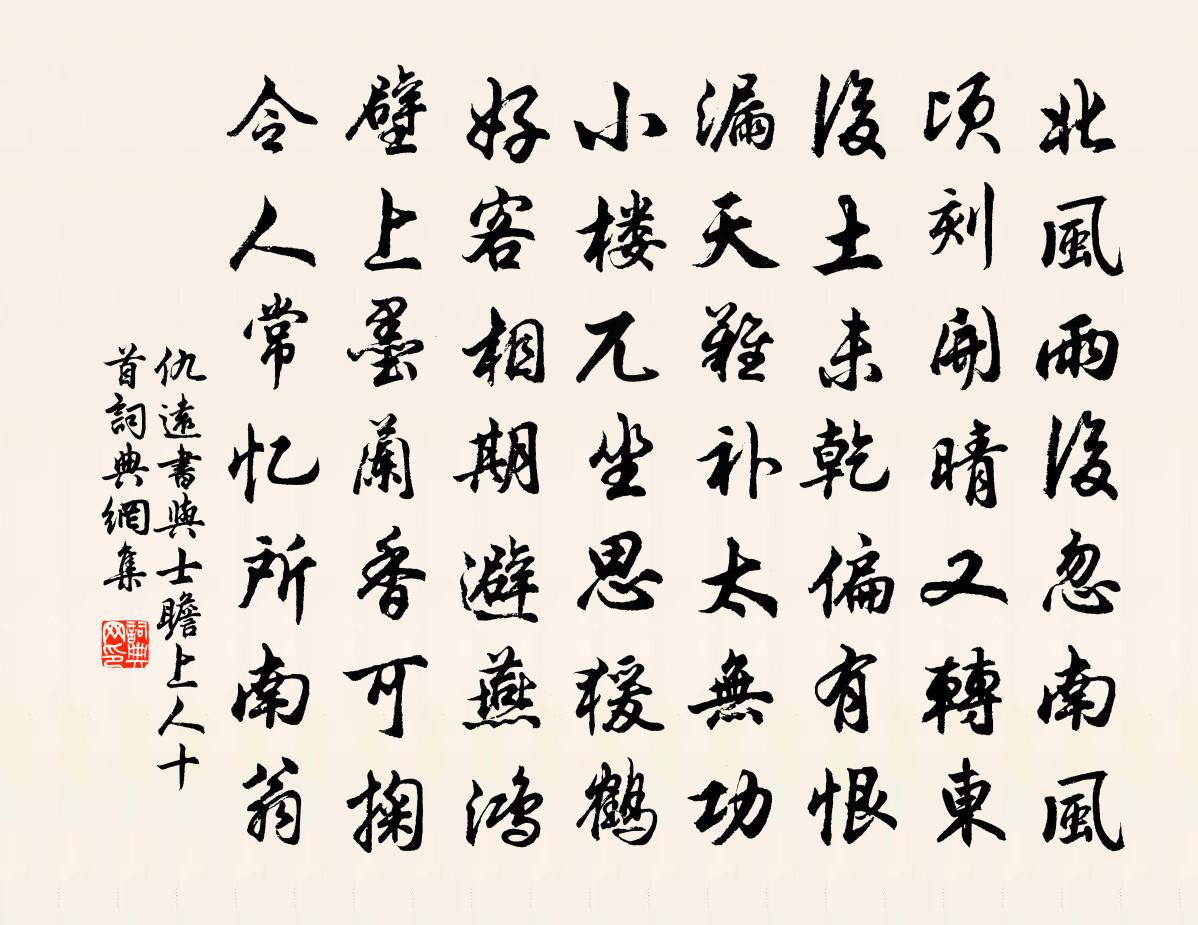 北風雨後忽南風
頃刻開晴又轉東
後土未乾偏有恨
漏天難补太無功
小楼兀坐思猨鶴
好客相期避燕鸿
壁上墨蘭香可掬
令人常忆所南翁
仇遠書與士瞻上人十
首詞典網集
詞典网印